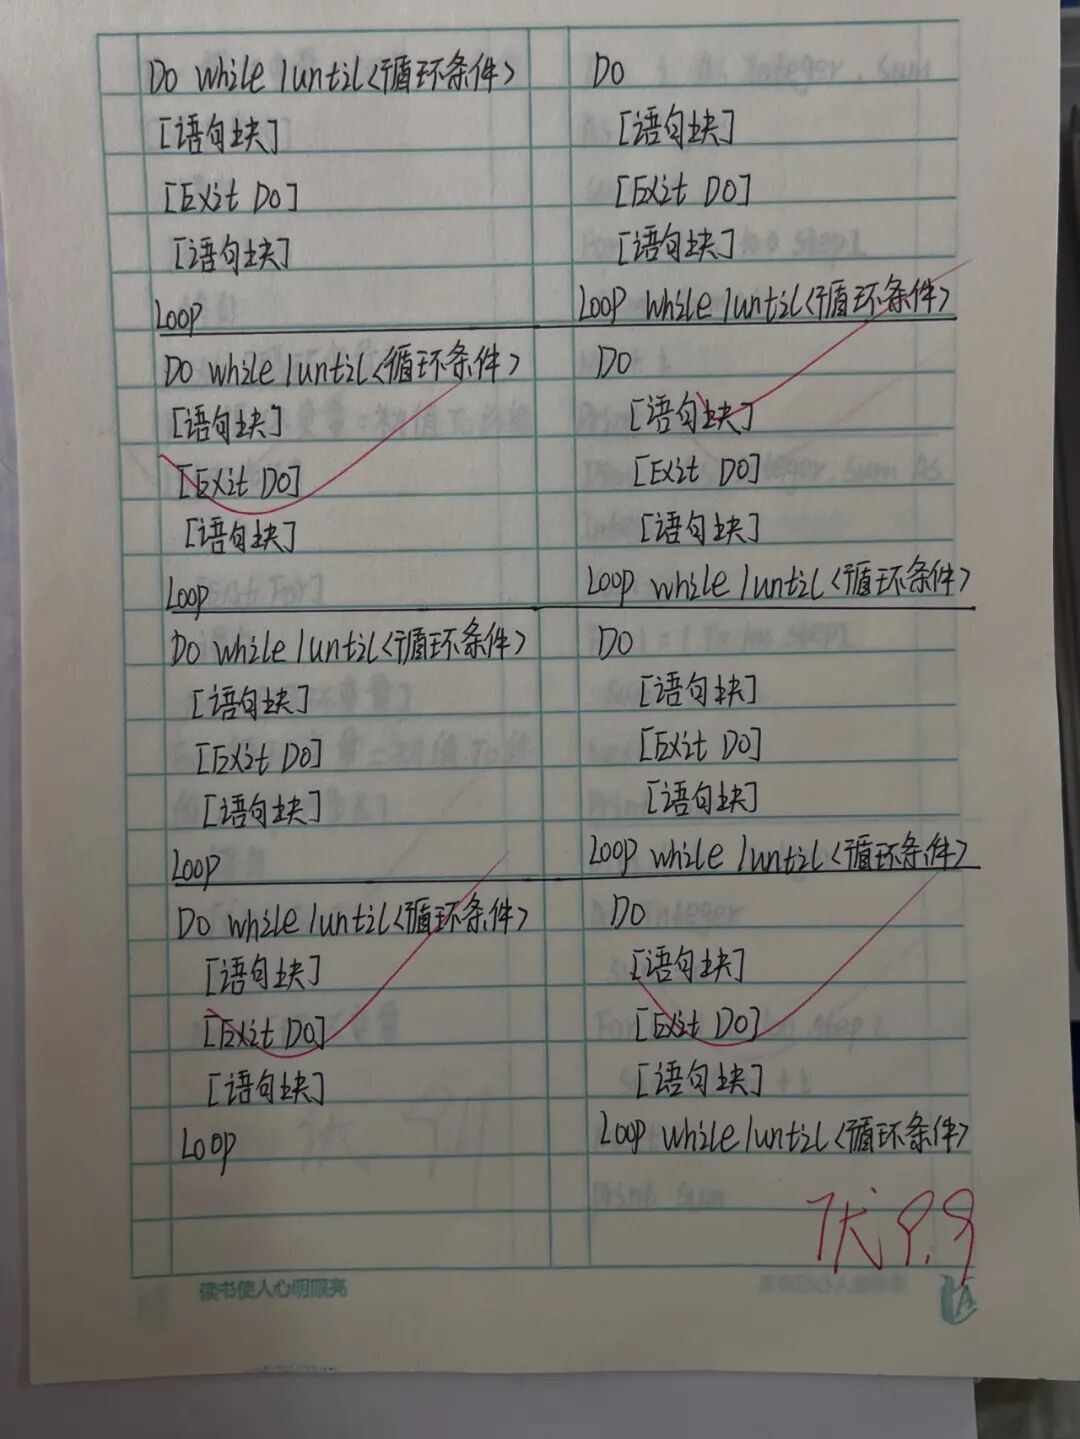 Do while luntil<循环条件>
[语句块]
[Exit Do]
[语句块]
Loop
Do while luntil<循环条件>
[语句块]
[Exit Do]
[语句块]
Loop
Do while luntil<循环条件>
[语句块]
[Exit Do]
[语句块]
Loop
Do while luntil<循环条件>
[语句块]
[Exit Do]
[语句块]
Loop
Do
[语句块]
[Exit Do]
[语句块]
Loop while luntil<循环条件>
Do
[语句块]
[Exit Do]
[语句块]
Loop while luntil<循环条件>
Do
[语句块]
[Exit Do]
[语句块]
Loop while luntil<循环条件>
Do
[语句块]
[Exit Do]
[语句块]
Loop while luntil<循环条件>
优 9.9
读书使人心明眼亮